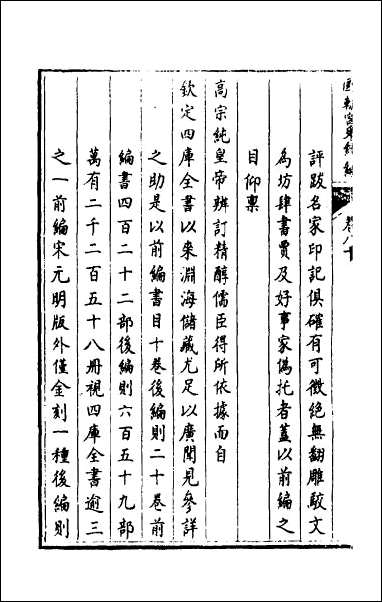 國朝宮史續編
卷八十
評跋名家印記俱確有可徵絕無翻雕駮文
為坊肆書賈及好事家偽托者蓋以前編之
目仰稟
高宗純皇帝辨訂精醇儒臣得所依據而自
欽定四庫全書以來淵海儲藏尤足以廣聞見參詳
之助是以前編書目十卷後編則二十卷前
編書四百二十二部後編則六百五十九部
萬有二千二百五十八冊視四庫全書逾三
之一前編宋元明版外僅金刻一種後編則